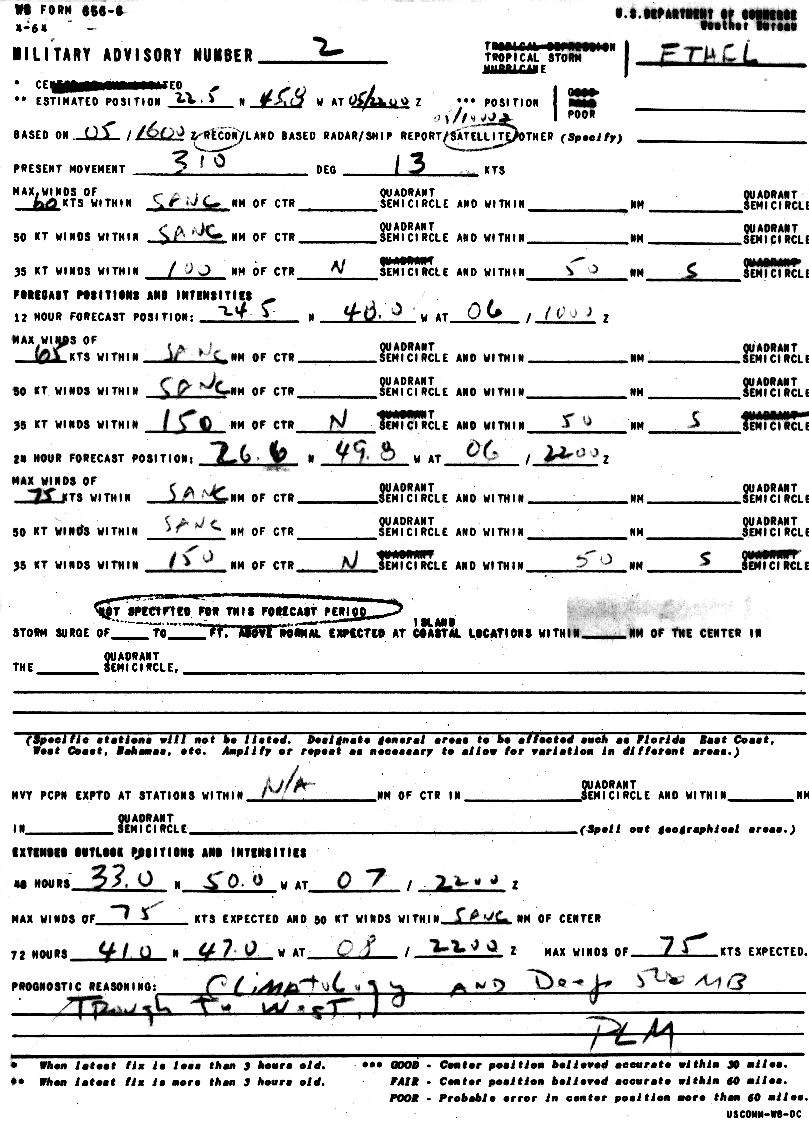 WB FORM 656-6 U.S. DEPARTMENT OF COMMERCE
4-64 Weather Bureau
MILITARY ADVISORY NUMBER 2 TROPICAL DEPRESSION ETHEL
TROPICAL STORM
HURRICANE
* CENTER
** ESTIMATED POSITION 22.5 N 45.8 W AT 05/2200 Z *** POSITION GOOD
FAIR
POOR
05/1900Z
BASED ON 05 / 1600 Z RECON/LAND BASED RADAR/SHIP REPORT/SATELLITE/OTHER (Specify)
PRESENT MOVEMENT 310 DEG 13 KTS
MAX WINDS OF QUADRANT QUADRANT
60 KTS WITHIN SANC NM OF CTR SEMICIRCLE AND WITHIN NM SEMICIRCLE
QUADRANT QUADRANT
50 KT WINDS WITHIN SANC NM OF CTR SEMICIRCLE AND WITHIN NM SEMICIRCLE
QUADRANT QUADRANT
35 KT WINDS WITHIN 100 NM OF CTR N SEMICIRCLE AND WITHIN 50 NM S SEMICIRCLE
FORECAST POSITIONS AND INTENSITIES
12 HOUR FORECAST POSITION: 24.5 N 48.0 W AT 06 / 1000 Z
MAX WINDS OF QUADRANT QUADRANT
65 KTS WITHIN SANC NM OF CTR SEMICIRCLE AND WITHIN NM SEMICIRCLE
QUADRANT QUADRANT
50 KT WINDS WITHIN SANC NM OF CTR SEMICIRCLE AND WITHIN NM SEMICIRCLE
QUADRANT QUADRANT
35 KT WINDS WITHIN 150 NM OF CTR N SEMICIRCLE AND WITHIN 50 NM S SEMICIRCLE
24 HOUR FORECAST POSITION: 26.6 N 49.8 W AT 06 / 2200 Z
MAX WINDS OF QUADRANT QUADRANT
75 KTS WITHIN SANC NM OF CTR SEMICIRCLE AND WITHIN NM SEMICIRCLE
QUADRANT QUADRANT
50 KT WINDS WITHIN SANC NM OF CTR SEMICIRCLE AND WITHIN NM SEMICIRCLE
QUADRANT QUADRANT
35 KT WINDS WITHIN 150 NM OF CTR N SEMICIRCLE AND WITHIN 50 NM S SEMICIRCLE
NOT SPECIFIED FOR THIS FORECAST PERIOD
ISLAND
STORM SURGE OF TO FT. ABOVE NORMAL EXPECTED AT COASTAL LOCATIONS WITHIN NM OF THE CENTER IN
QUADRANT
THE SEMICIRCLE,
(Specific stations will not be listed. Designate general areas to be affected such as Florida East Coast,
West Coast, Bahamas, etc. Amplify or repeat as necessary to allow for variation in different areas.)
QUADRANT
HVY PCPN EXPTD AT STATIONS WITHIN N/A NM OF CTR IN SEMICIRCLE AND WITHIN NM
QUADRANT
IN SEMICIRCLE (Spell out geographical areas.)
EXTENDED OUTLOOK POSITIONS AND INTENSITIES
48 HOURS 33.0 N 50.0 W AT 07 / 2200 Z
MAX WINDS OF 75 KTS EXPECTED AND 50 KT WINDS WITHIN SANC NM OF CENTER
72 HOURS 41.0 N 47.0 W AT 08 / 2200 Z MAX WINDS OF 75 KTS EXPECTED.
PROGNOSTIC REASONING: Climatology AND Deep 500 MB
Trough To West.
PLM
* When latest fix is less than 3 hours old. *** GOOD - Center position believed accurate within 30 miles.
** When latest fix is more than 3 hours old. FAIR - Center position believed accurate within 60 miles.
POOR - Probable error in center position more than 60 miles.
USCOMM-WB-DC